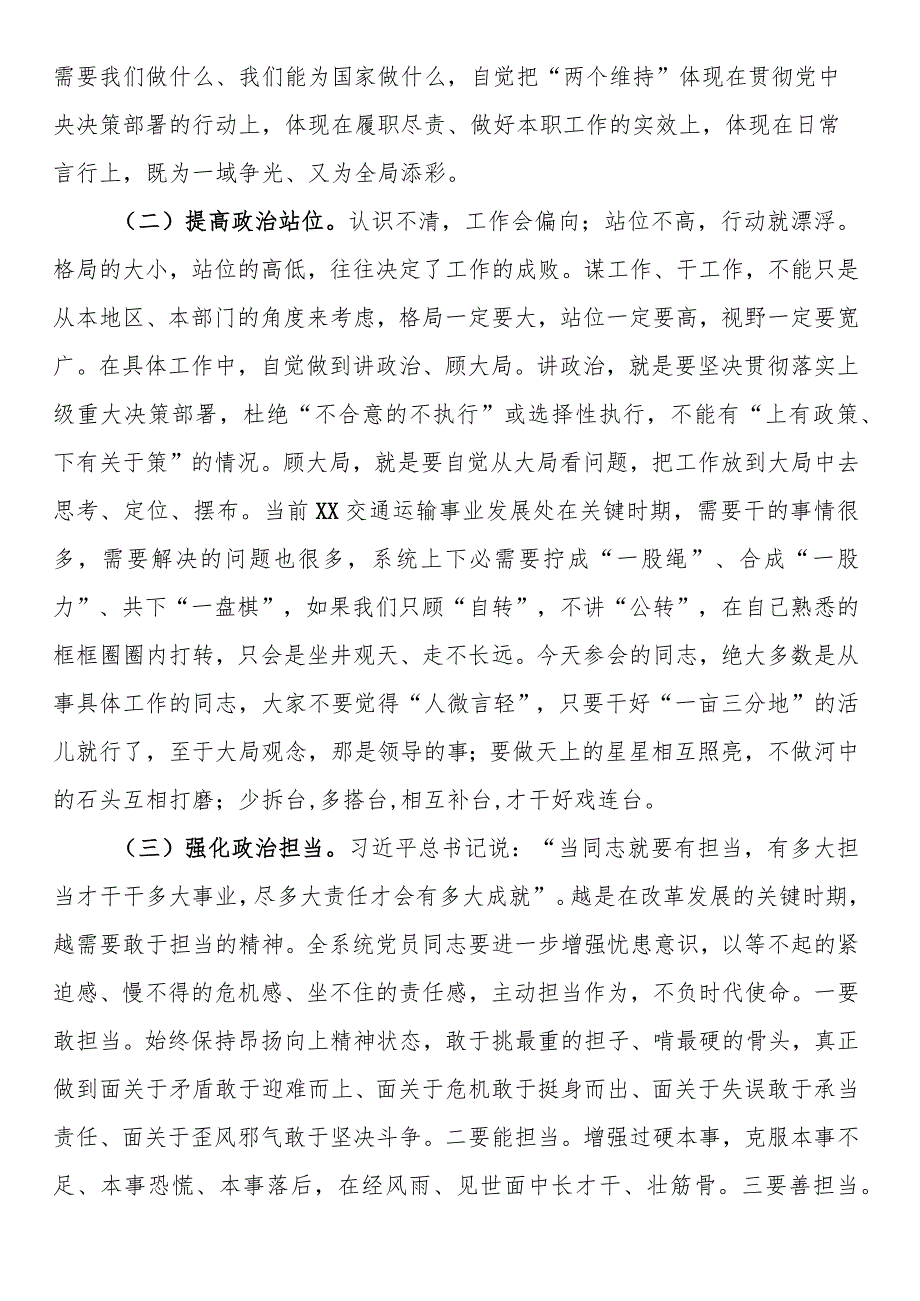 需要我们做什么、我们能为国家做什么，自觉把“两个维持”体现在贯彻党中
央决策部署的行动上，体现在履职尽责、做好本职工作的实效上，体现在日常
言行上，既为一域争光、又为全局添彩。
（二）提高政治站位。认识不清，工作会偏向；站位不高，行动就漂浮。
格局的大小，站位的高低，往往决定了工作的成败。谋工作、干工作，不能只是
从本地区、本部门的角度来考虑，格局一定要大，站位一定要高，视野一定要宽
广。在具体工作中，自觉做到讲政治、顾大局。讲政治，就是要坚决贯彻落实上
级重大决策部署，杜绝“不合意的不执行”或选择性执行，不能有“上有政策、
下有关于策”的情况。顾大局，就是要自觉从大局看问题，把工作放到大局中去
思考、定位、摆布。当前 XX 交通运输事业发展处在关键时期，需要干的事情很
多，需要解决的问题也很多，系统上下必需要拧成“一股绳”、合成“一股
力”、共下“一盘棋”，如果我们只顾“自转”，不讲“公转”，在自己熟悉的
框框圈圈内打转，只会是坐井观天、走不长远。今天参会的同志，绝大多数是从
事具体工作的同志，大家不要觉得“人微言轻”，只要干好“一亩三分地”的活
儿就行了，至于大局观念，那是领导的事；要做天上的星星相互照亮，不做河中
的石头互相打磨；少拆台,多搭台,相互补台,才干好戏连台。
（三）强化政治担当。习近平总书记说：“当同志就要有担当，有多大担
当才干干多大事业,尽多大责任才会有多大成就”。越是在改革发展的关键时期，
越需要敢于担当的精神。全系统党员同志要进一步增强忧患意识，以等不起的紧
迫感、慢不得的危机感、坐不住的责任感，主动担当作为，不负时代使命。一要
敢担当。始终保持昂扬向上精神状态，敢于挑最重的担子、啃最硬的骨头，真正
做到面关于矛盾敢于迎难而上、面关于危机敢于挺身而出、面关于失误敢于承当
责任、面关于歪风邪气敢于坚决斗争。二要能担当。增强过硬本事，克服本事不
足、本事恐慌、本事落后，在经风雨、见世面中长才干、壮筋骨。三要善担当。